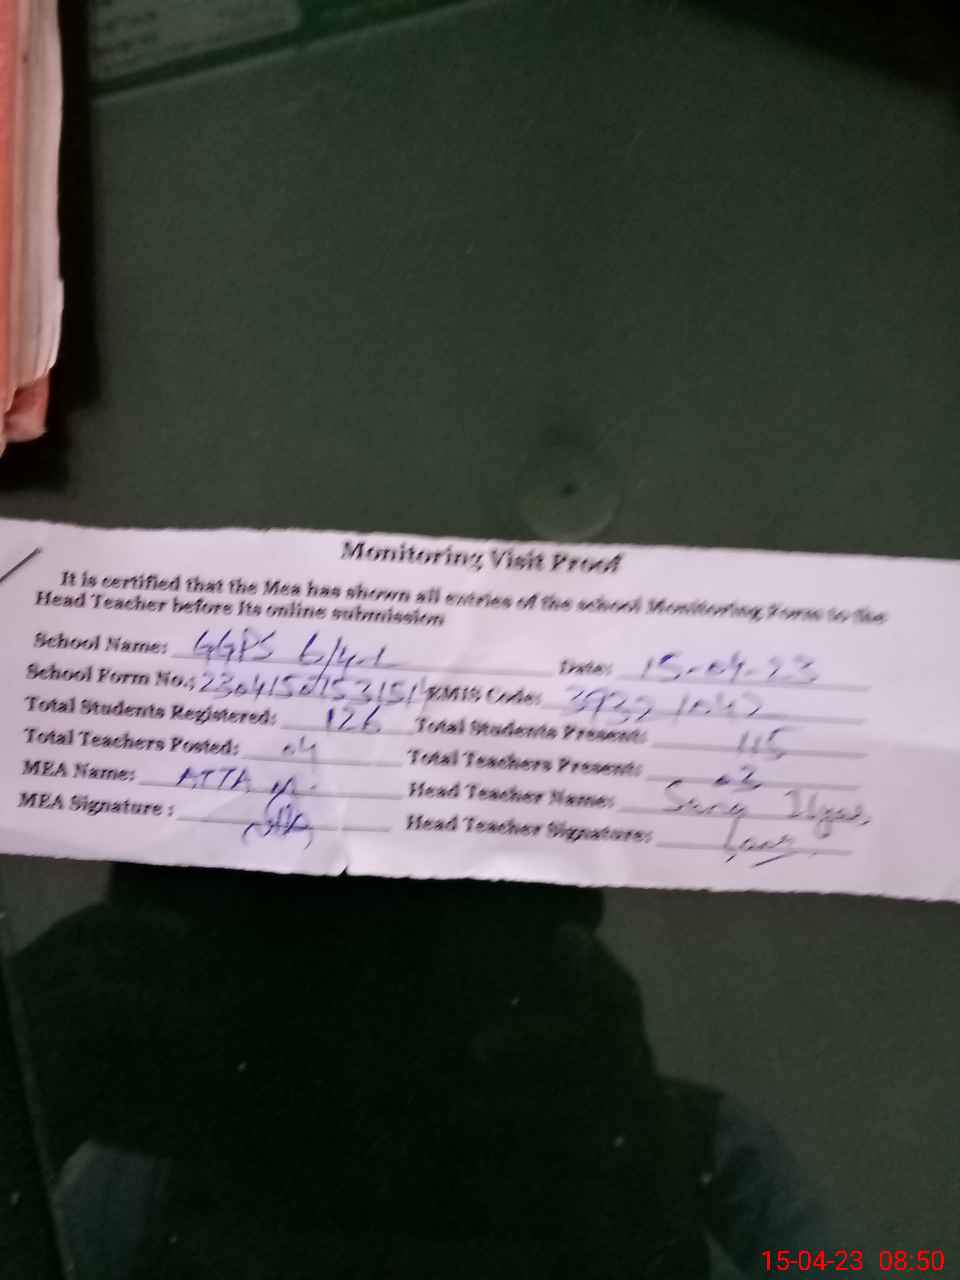 Monitoring Visit Proof
It is certified that the Mea has shown all entries of the school Monitoring Form to the
Head Teacher before its online submission
School Name: GGPS 6/4-L Date: 15-04-23
School Form No.: EMIS Code:
Total Students Registered: 126 Total Students Present: 115
Total Teachers Posted: 04 Total Teachers Present:
MEA Name: ATTA M. Head Teacher Name:
MEA Signature : Head Teacher Signature:
15-04-23 08:50